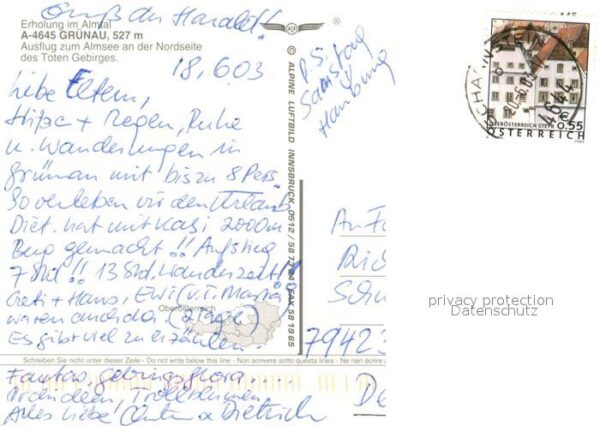 Gruß an Harald!
Erholung im Almtal
A-4645 GRÜNAU, 527 m
Ausflug zum Almsee an der Nordseite
des Toten Gebirges.
18.6.03
Liebe Eltern,
Hitze + Regen, Ruhe
u. Wanderungen in
Grünau mit bis zu 8 Pers
So verleben wir den Urlaub
Diet. hat mit 2000m
Berg gemacht!! Aufstieg
7 Std!! 13 Std. Wanderzeit!!
Greti + Hans, Ewi (v. T.
waren auch da. (2 Tage)
Es gibt viel zu erzählen.
Oberösterreich
P.S.
Samstag
Hamburg
© ALPINE LUFTBILD INNSBRUCK, 0512 / 58 FAX 58 19 65
SCHARNSTEIN
20.-6.03
4644
€ 0.55
OBERÖSTERREICH STEYR
ÖSTERREICH
An Fa
79423
privacy protection
Datenschutz
Schreiben Sie nicht unter dieser Zeile - Do not write below this line - Non scrivere sotto questa linea - Ne rien écrire
Fantast. Gebirgsflora
Trollblumen.
Alles Liebe! + Dietrich
De